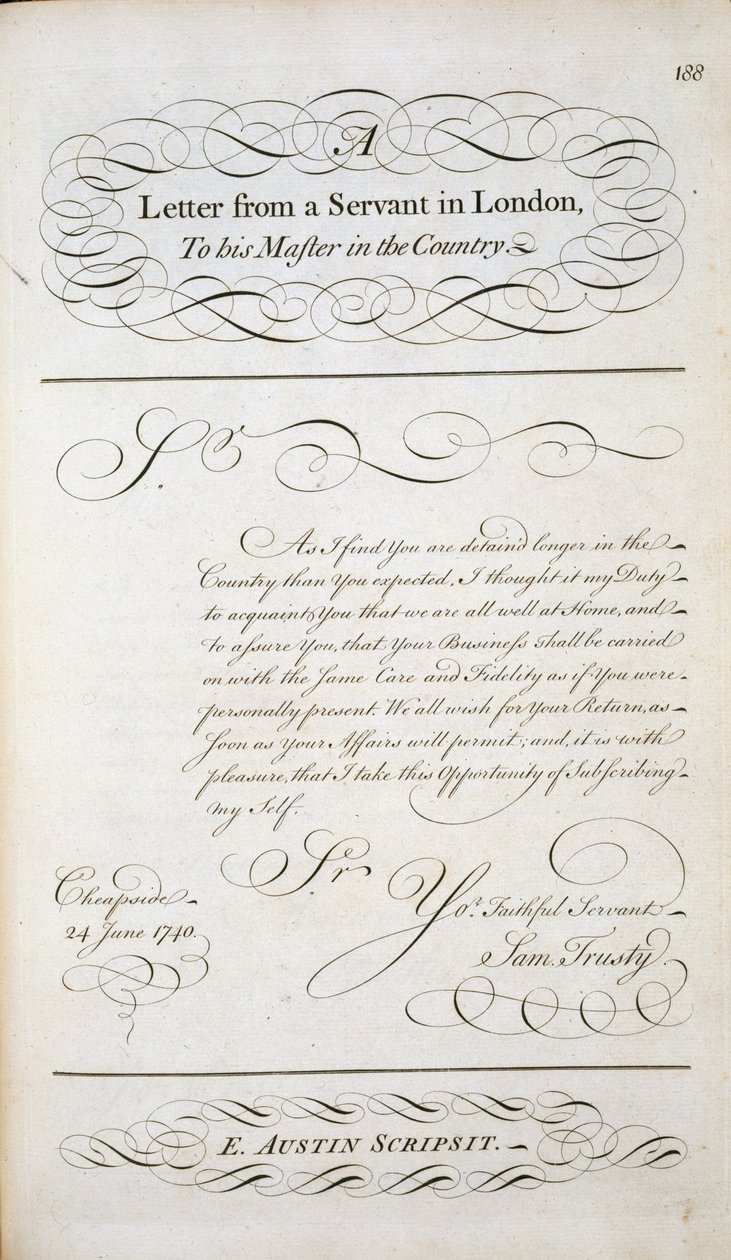 188
A
Letter from a Servant in London,
To his Maſter in the Country.
Sr.
As I find You are detain'd longer in the
Country than You expected, I thought it my Duty
to acquaint You that we are all well at Home, and
to aſsure You, that Your Buſineſs shall be carried
on with the ſame Care and Fidelity as if You were
personally present. We all wish for Your Return, as
ſoon as Your Affairs will permit; and, it is with
pleasure, that I take this Opportunity of Subſcribing
my Self.
Sr.
Yor. Faithful Servant
Sam. Trusty.
Cheapside
24 June 1740.
E. AUSTIN SCRIPSIT.